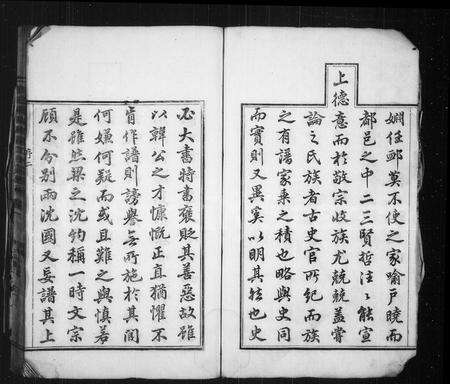 婣任卹莫不使之家喻戶曉而
都邑之中二三賢哲往〻能宣
上德意而於敬宗收族尤兢兢蓋嘗
論之氏族者古史官所紀而族
之有譜家乘之積也略與史同
而實則又異奚以明其然也史
必大書特書褒貶其善惡故雖
以韓公之才慷慨正直猶懼不
肯作譜則謗譽無所施於其間
何嫌何疑而或且難之與慎若
是雖然梁之沈約稱一時文宗
顧不分別兩沈國又妄譜其上